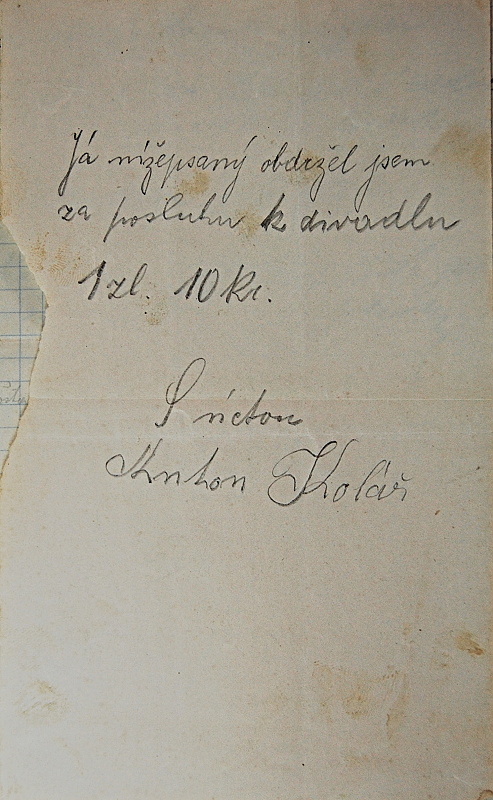 Já nížepsaný obdržel jsem
za posluhu k divadlu
1 zl. 10 kr.
S úctou
Anton Kolář